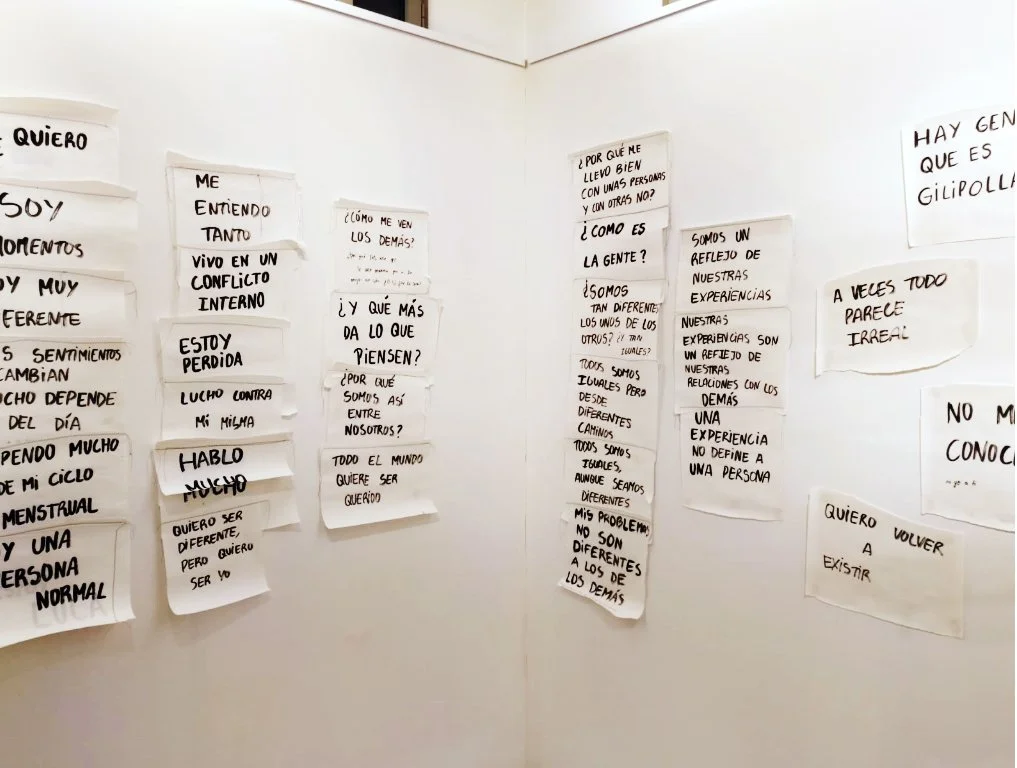 QUIERO
SOY
MOMENTOS
MUY
SENTIMIENTOS
CAMBIAN
DEPENDE
DEL DÍA
MUCHO
DE MI CICLO
MENSTRUAL
UNA
PERSONA
NORMAL
ME
ENTIENDO
TANTO
VIVO EN UN
CONFLICTO
INTERNO
ESTOY
PERDIDA
LUCHO CONTRA
MI MISMA
HABLO
MUCHO
QUIERO SER
DIFERENTE,
PERO QUIERO
SER YO
¿CÓMO ME VEN
LOS DEMÁS?
¿Y QUÉ MÁS
DA LO QUE
PIENSEN?
¿POR QUÉ
SOMOS ASÍ
ENTRE
NOSOTROS?
TODO EL MUNDO
QUIERE SER
QUERIDO
¿POR QUÉ ME
LLEVO BIEN
CON UNAS PERSONAS
Y CON OTRAS NO?
¿COMO ES
LA GENTE?
¿SOMOS
TAN DIFERENTES
LOS UNOS DE LOS
OTROS? ¿Y TAN
IGUALES?
TODOS SOMOS
IGUALES PERO
DESDE
DIFERENTES
CAMINOS
TODOS SOMOS
IGUALES,
AUNQUE SEAMOS
DIFERENTES
MIS PROBLEMAS
NO SON
DIFERENTES
A LOS DE
LOS DEMÁS
SOMOS UN
REFLEJO DE
NUESTRAS
EXPERIENCIAS
NUESTRAS
EXPERIENCIAS SON
UN REFLEJO DE
NUESTRAS
RELACIONES CON LOS
DEMÁS
UNA
EXPERIENCIA
NO DEFINE A
UNA PERSONA
HAY GEN
QUE ES
GILIPOLLA
A VECES TODO
PARECE
IRREAL
NO M
CONOC
QUIERO VOLVER
A
EXISTIR